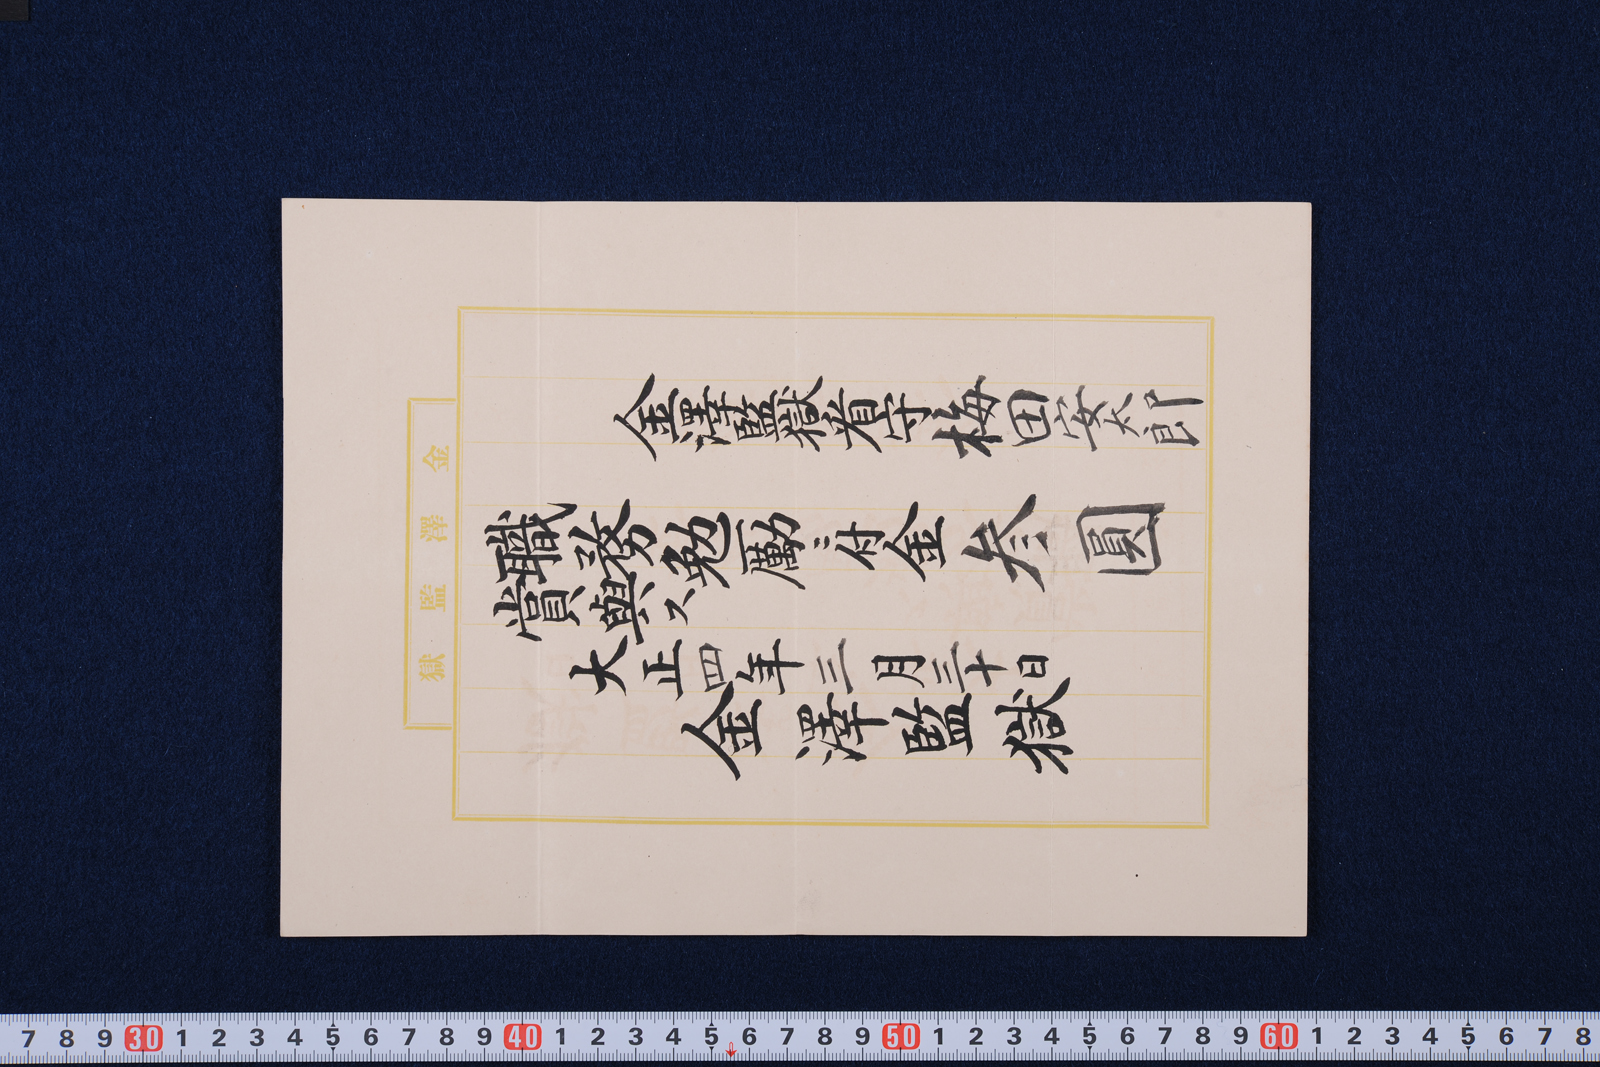 金澤監獄
金澤監獄看守梅田安太郎
職務勉厲ニ付金叁圓
賞與ス
大正四年三月三十日
金澤監獄
7 8 9 30 1 2 3 4 5 6 7 8 9 40 1 2 3 4 5 6 7 8 9 50 1 2 3 4 5 6 7 8 9 60 1 2 3 4 5 6 7 8